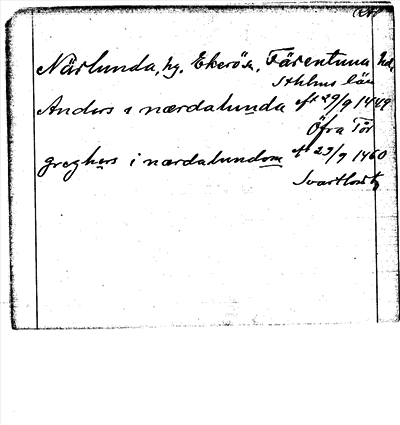 Närlunda, hg. Ekerö sn, Färentuna hd
Sthlms län
Anders i nærdalunda Afs 29/9 1449
Öfra Tör
greghers i nærdalundom Afs 29/9 1460
Svartlösa